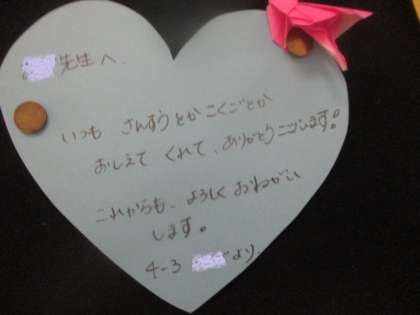 先生へ
いつも さんすうとかこくごとか
おしえて くれて、ありがとうございます!
これからも、よろしく おねがい
します。
4-3 より